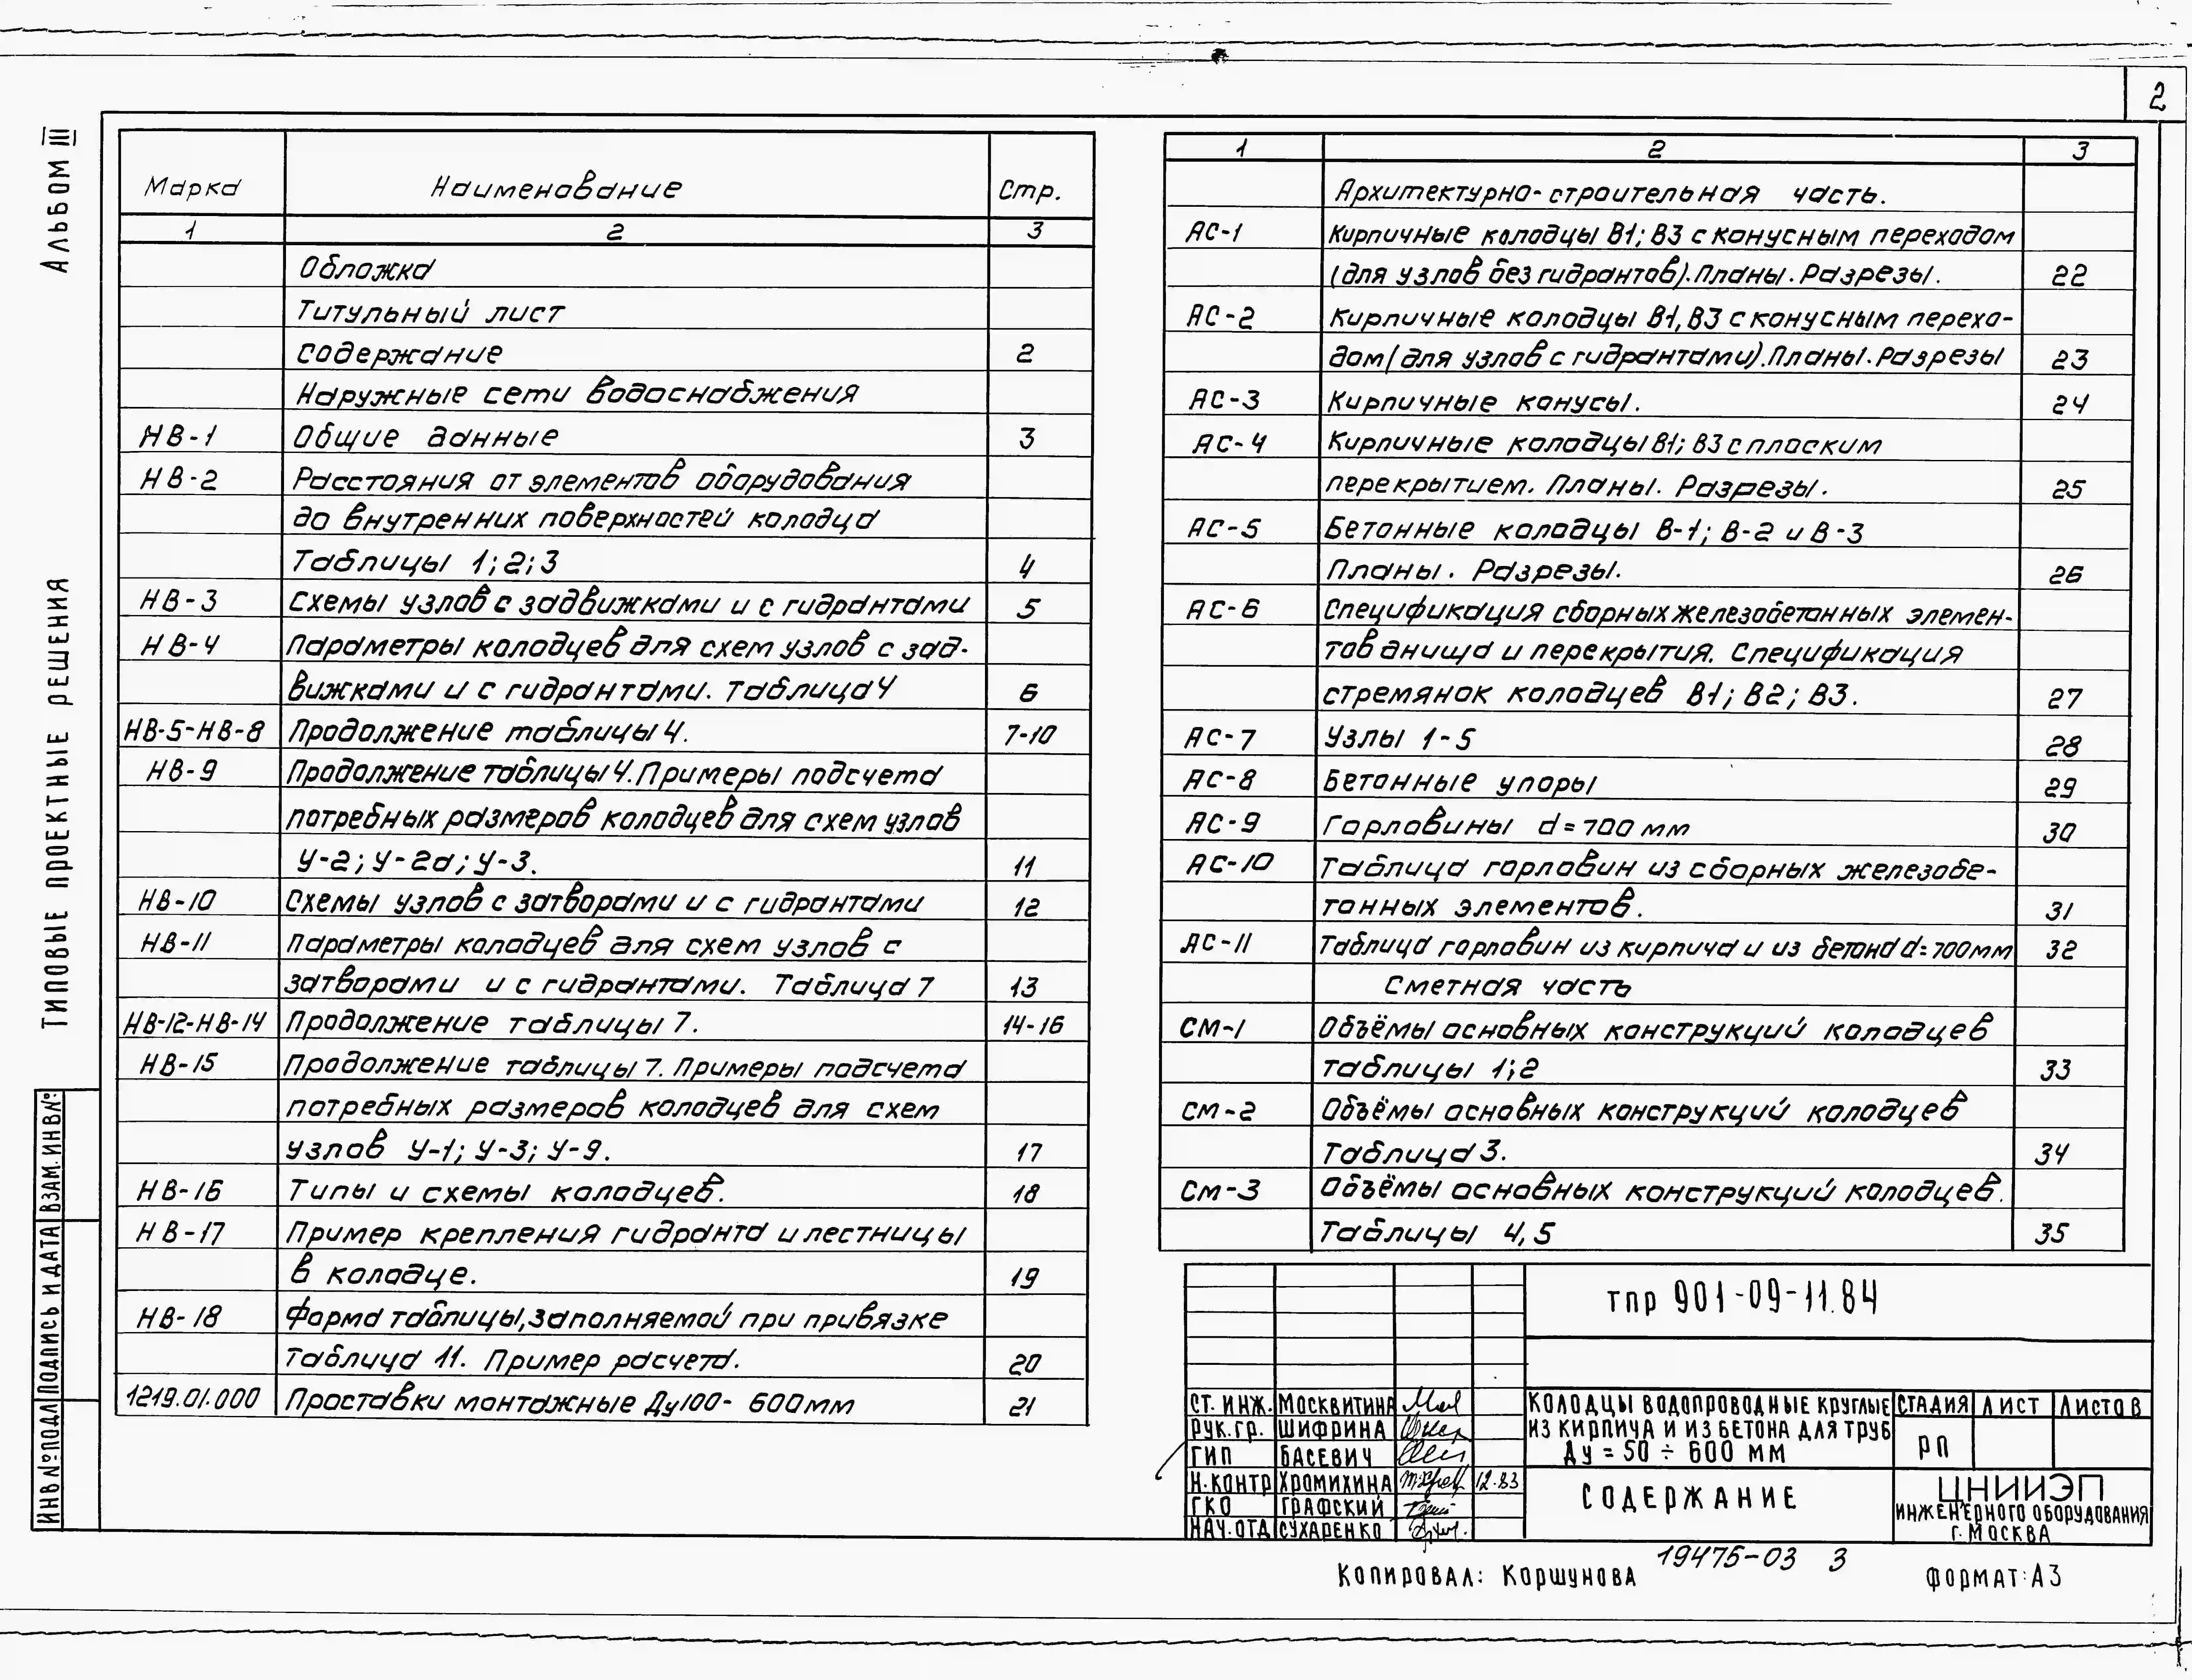 2
АЛЬБОМ III
ТИПОВЫЕ ПРОЕКТНЫЕ РЕШЕНИЯ
ВЗАМ. ИНВ№
ПОДПИСЬ И ДАТА
ИНВ №ПОДЛ
Марка Наименование Стр.
1 2 3
Обложка
Титульный лист
Содержание 2
Наружные сети водоснабжения
НВ-1 Общие данные 3
НВ-2 Расстояния от элементов оборудования
до внутренних поверхностей колодца
Таблицы 1; 2; 3 4
НВ-3 Схемы узлов с задвижками и с гидрантами 5
НВ-4 Параметры колодцев для схем узлов с зад-
вижками и с гидрантами. Таблица 4 6
НВ-5-НВ-8 Продолжение таблицы 4. 7-10
НВ-9 Продолжение таблицы 4. Примеры подсчета
потребных размеров колодцев для схем узлов
У-2; У-2а; У-3. 11
НВ-10 Схемы узлов с затворами и с гидрантами 12
НВ-11 Параметры колодцев для схем узлов с
затворами и с гидрантами. Таблица 7 13
НВ-12-НВ-14 Продолжение таблицы 7. 14-16
НВ-15 Продолжение таблицы 7. Примеры подсчета
потребных размеров колодцев для схем
узлов У-1; У-3; У-9. 17
НВ-16 Типы и схемы колодцев. 18
НВ-17 Пример крепления гидранта и лестницы
в колодце. 19
НВ-18 Форма таблицы, заполняемой при привязке
Таблица 11. Пример расчета. 20
1219.01.000 Проставки монтажные Ду100- 600мм 21
1 2 3
Архитектурно-строительная часть.
АС-1 Кирпичные колодцы В1; В3 с конусным переходом
(для узлов без гидрантов). Планы. Разрезы. 22
АС-2 Кирпичные колодцы В1, В3 с конусным перехо-
дом (для узлов с гидрантами). Планы. Разрезы 23
АС-3 Кирпичные конусы. 24
АС-4 Кирпичные колодцы В1; В3 с плоским
перекрытием. Планы. Разрезы. 25
АС-5 Бетонные колодцы В-1; В-2 и В-3
Планы. Разрезы. 26
АС-6 Спецификация сборных железобетонных элемен-
тов днища и перекрытия. Спецификация
стремянок колодцев В1; В2; В3. 27
АС-7 Узлы 1-5 28
АС-8 Бетонные упоры 29
АС-9 Горловины d=700 мм 30
АС-10 Таблица горловин из сборных железобе-
тонных элементов. 31
АС-11 Таблица горловин из кирпича и из бетона d=700мм 32
Сметная часть
СМ-1 Объёмы основных конструкций колодцев
таблицы 1; 2 33
СМ-2 Объёмы основных конструкций колодцев
Таблица 3. 34
СМ-3 Объёмы основных конструкций колодцев.
Таблицы 4, 5 35
тпр 901-09-11.84
СТ. ИНЖ. МОСКВИТИНА
РУК. ГР. ШИФРИНА
ГИП БАСЕВИЧ
Н. КОНТР ХРОМИХИНА 12.83
ГКО ГРАФСКИЙ
НАЧ. ОТД СУХАРЕНКО
КОЛОДЦЫ ВОДОПРОВОДНЫЕ КРУГЛЫЕ
ИЗ КИРПИЧА И ИЗ БЕТОНА ДЛЯ ТРУБ
Ду = 50 ÷ 600 ММ
СТАДИЯ ЛИСТ ЛИСТОВ
РП
СОДЕРЖАНИЕ
ЦНИИЭП
ИНЖЕНЕРНОГО ОБОРУДОВАНИЯ
Г. МОСКВА
КОПИРОВАЛ: КОРШУНОВА
19475-03 3
ФОРМАТ: А3